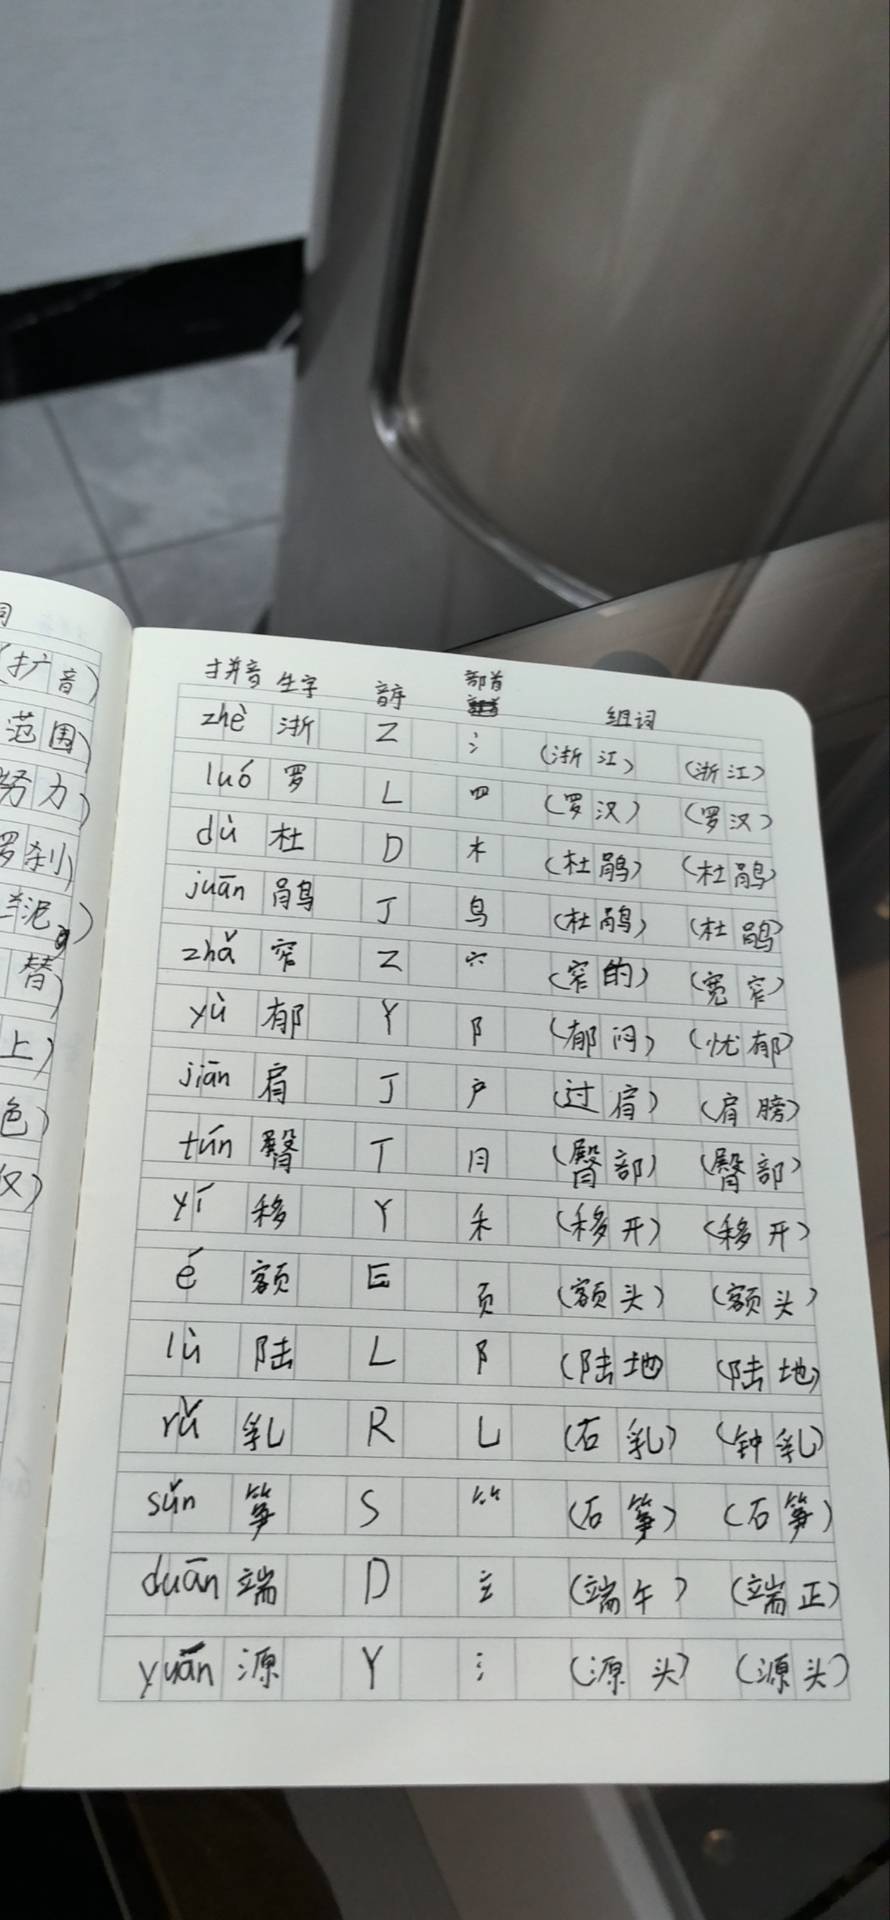 词
(扩音)
范围)
努力)
罗刹)
泥)
替)
上)
色)
汉)
拼音 生字 音序 部首 组词
zhè 浙 Z 氵 (浙江) (浙江)
luó 罗 L 罒 (罗汉) (罗汉)
dù 杜 D 木 (杜鹃) (杜鹃)
juān 鹃 J 鸟 (杜鹃) (杜鹃)
zhǎ 窄 Z 穴 (窄的) (宽窄)
yù 郁 Y 阝 (郁闷) (忧郁)
jiān 肩 J 户 (过肩) (肩膀)
tún 臀 T 月 (臀部) (臀部)
yí 移 Y 禾 (移开) (移开)
é 额 E 页 (额头) (额头)
lù 陆 L 阝 (陆地 (陆地)
rǔ 乳 R 乚 (石乳) (钟乳)
sǔn 笋 S ⺮ (石笋) (石笋)
duān 端 D 立 (端午) (端正)
yuán 源 Y 氵 (源头) (源头)